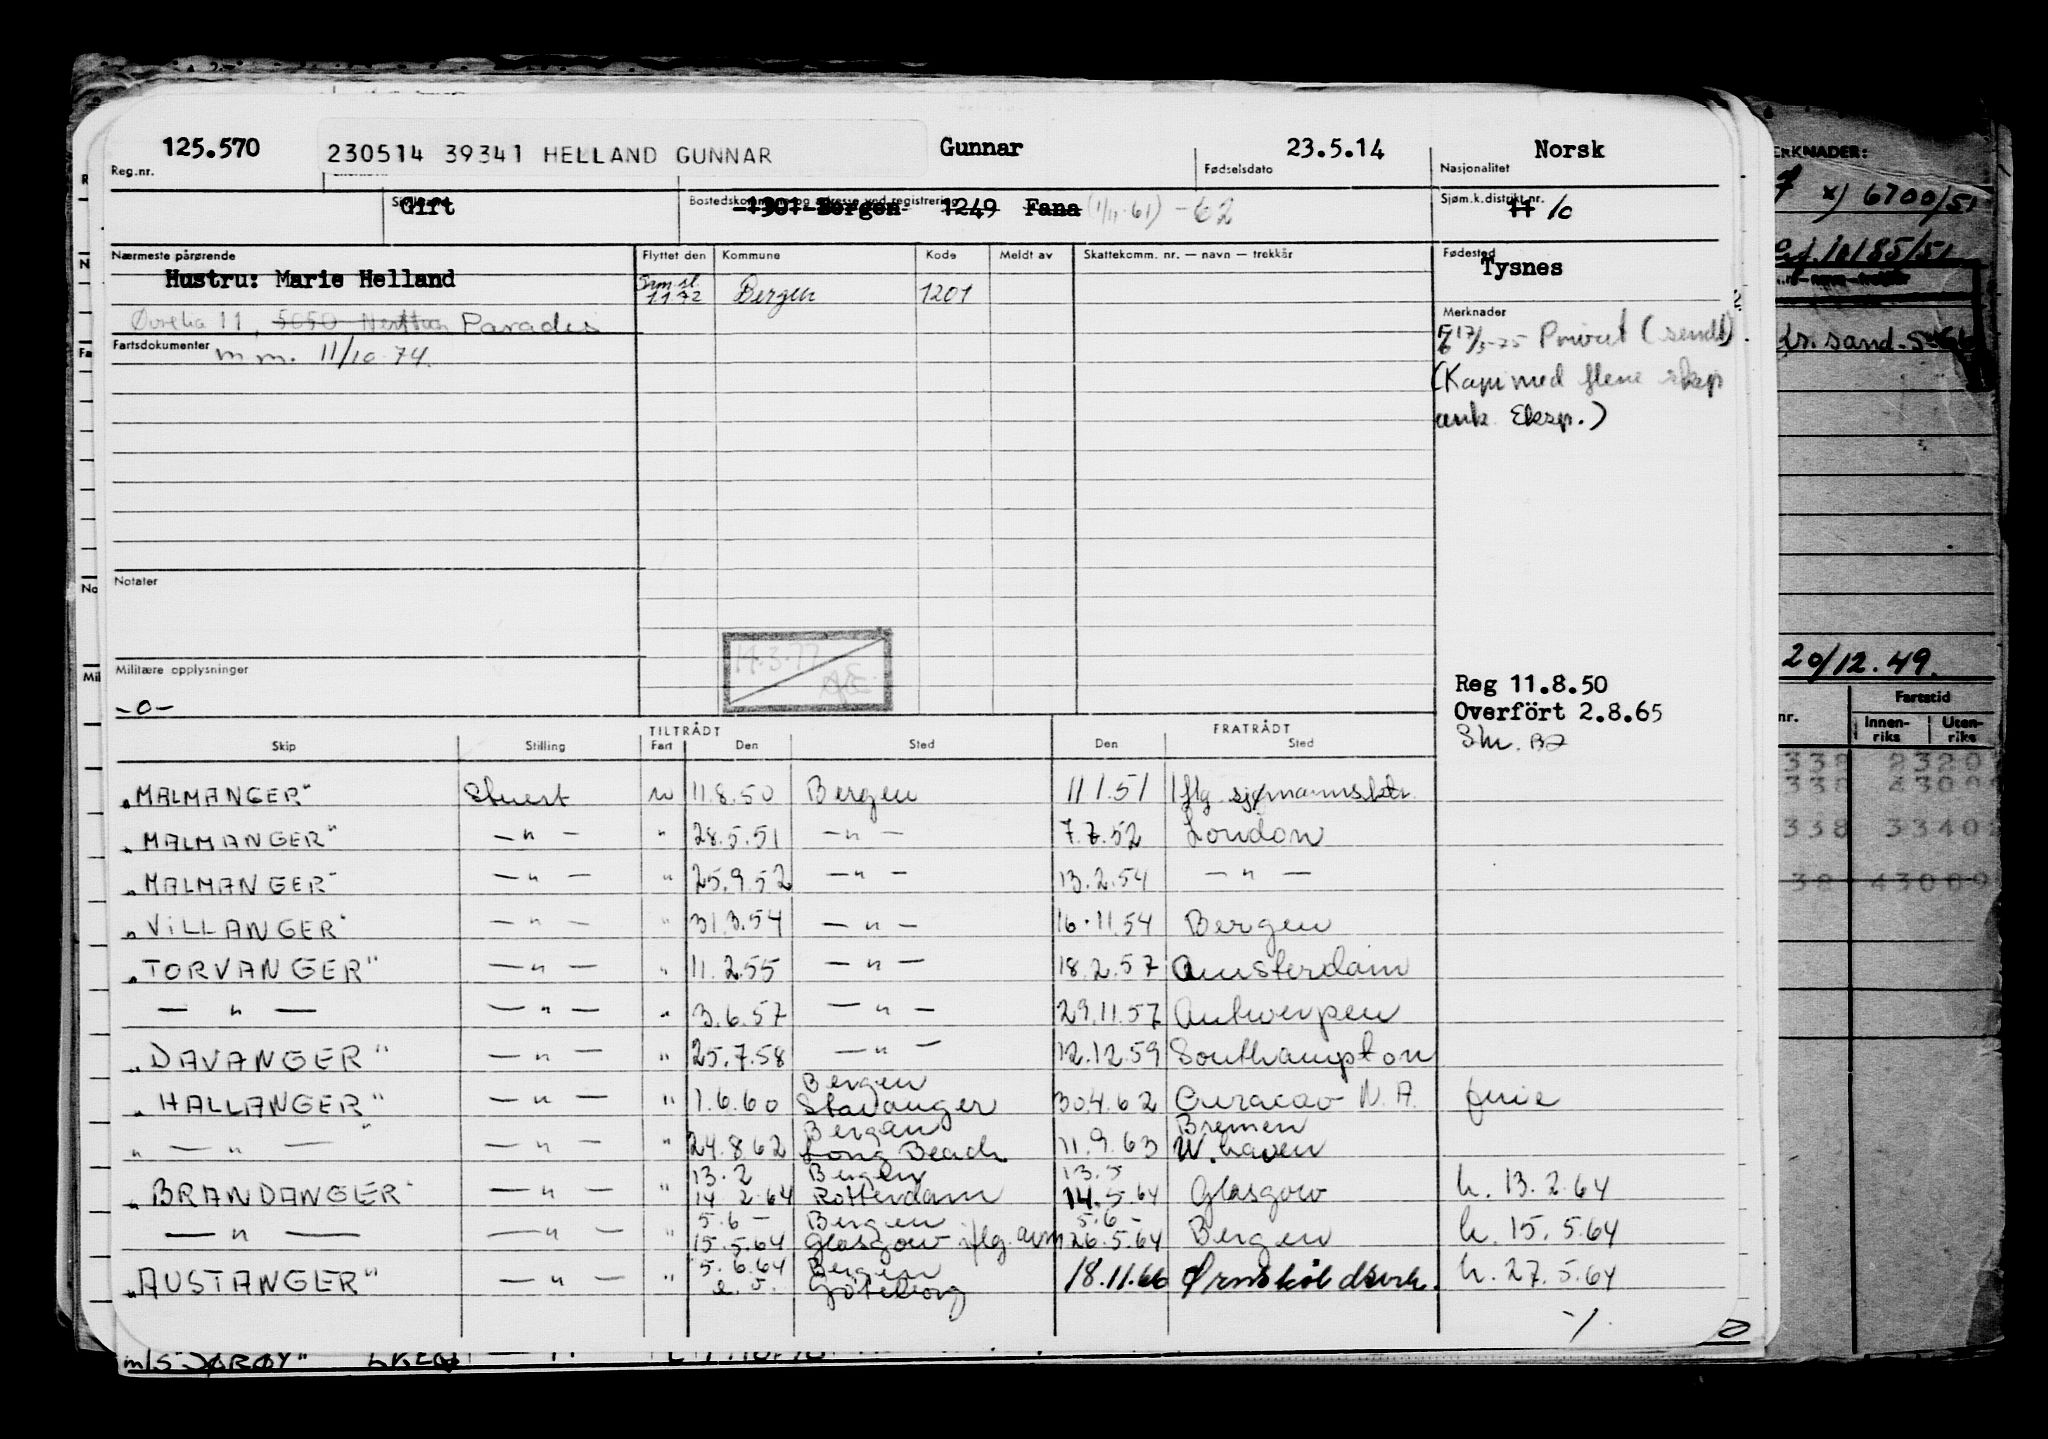 125.570 230514 39341 HELLAND GUNNAR Gunnar 23.5.14 Norsk
Reg.nr. Fødselsdato Nasjonalitet
Gift Bostedskommune og adresse ved registrering Sjøm.k.distrikt nr.
1301 Bergen 1249 Fana (1/11-61) -62 11 10
Nærmeste pårørende Flyttet den Kommune Kode Meldt av Skattekomm. nr. — navn — trekkår Fødested
Hustru: Marie Helland 1.1.72 Bergen 1201 Tysnes
11, 5050 Nesttun Paradis
Merknader
Fartsdokumenter m m. 11/10.74.
17/3-75 Privat (sendt)
(Kapi med flere skip
ank Eksp.)
Notater
14.3.77
Militære opplysninger
-o-
Reg 11.8.50
Overfört 2.8.65
TILTRÅDT FRATRÅDT
Skip Stilling Fart Den Sted Den Sted
"MALMANGER" Stuert u 11.8.50 Bergen 11 1.51 iflg sjømannsktr.
"MALMANGER" — " — " 28.5.51 — " — 7.7.52 London
"MALMANGER" — " — " 25.9.52 — " — 13.2.54 — " —
"VILLANGER" — " — " 31.3.54 — " — 16.11.54 Bergen
"TORVANGER" — " — " 11.2.55 — " — 18.2.57 Amsterdam
— " — — " — " 3.6.57 — " — 29.11.57 Antwerpen
"DAVANGER" — " — " 25.7.58 — " — 12.12.59 Southampton
Bergen
"HALLANGER" — " — " 1.6.60 Stavanger 30.4.62 Curacao N.A. ferie
Bergen Bremen
" — " — " — " — " 24.8.62 Long Beach 11.9.63 W.haven
13.2 Bergen 13.5
"BRANDANGER" — " — " 14 2.64 Rotterdam 14.5.64 Glasgow h. 13.2.64
5.6 - Bergen 5.6 -
— " — — " — " 15.5.64 Glasgow iflg. avm 26.5.64 Bergen h. 15.5.64
5.6.64 Bergen
"AUSTANGER" — " — " e.5. Göteborg 18.11.66 Ørnskiöldsvik. h. 27.5.64
ERKNADER:
x) 6700/51
10185/51
Kr.sand.S
20/12.49.
Fartstid
nr. Innen-riks Uten-riks
338 2320
338 4300
338 3340
38 43009